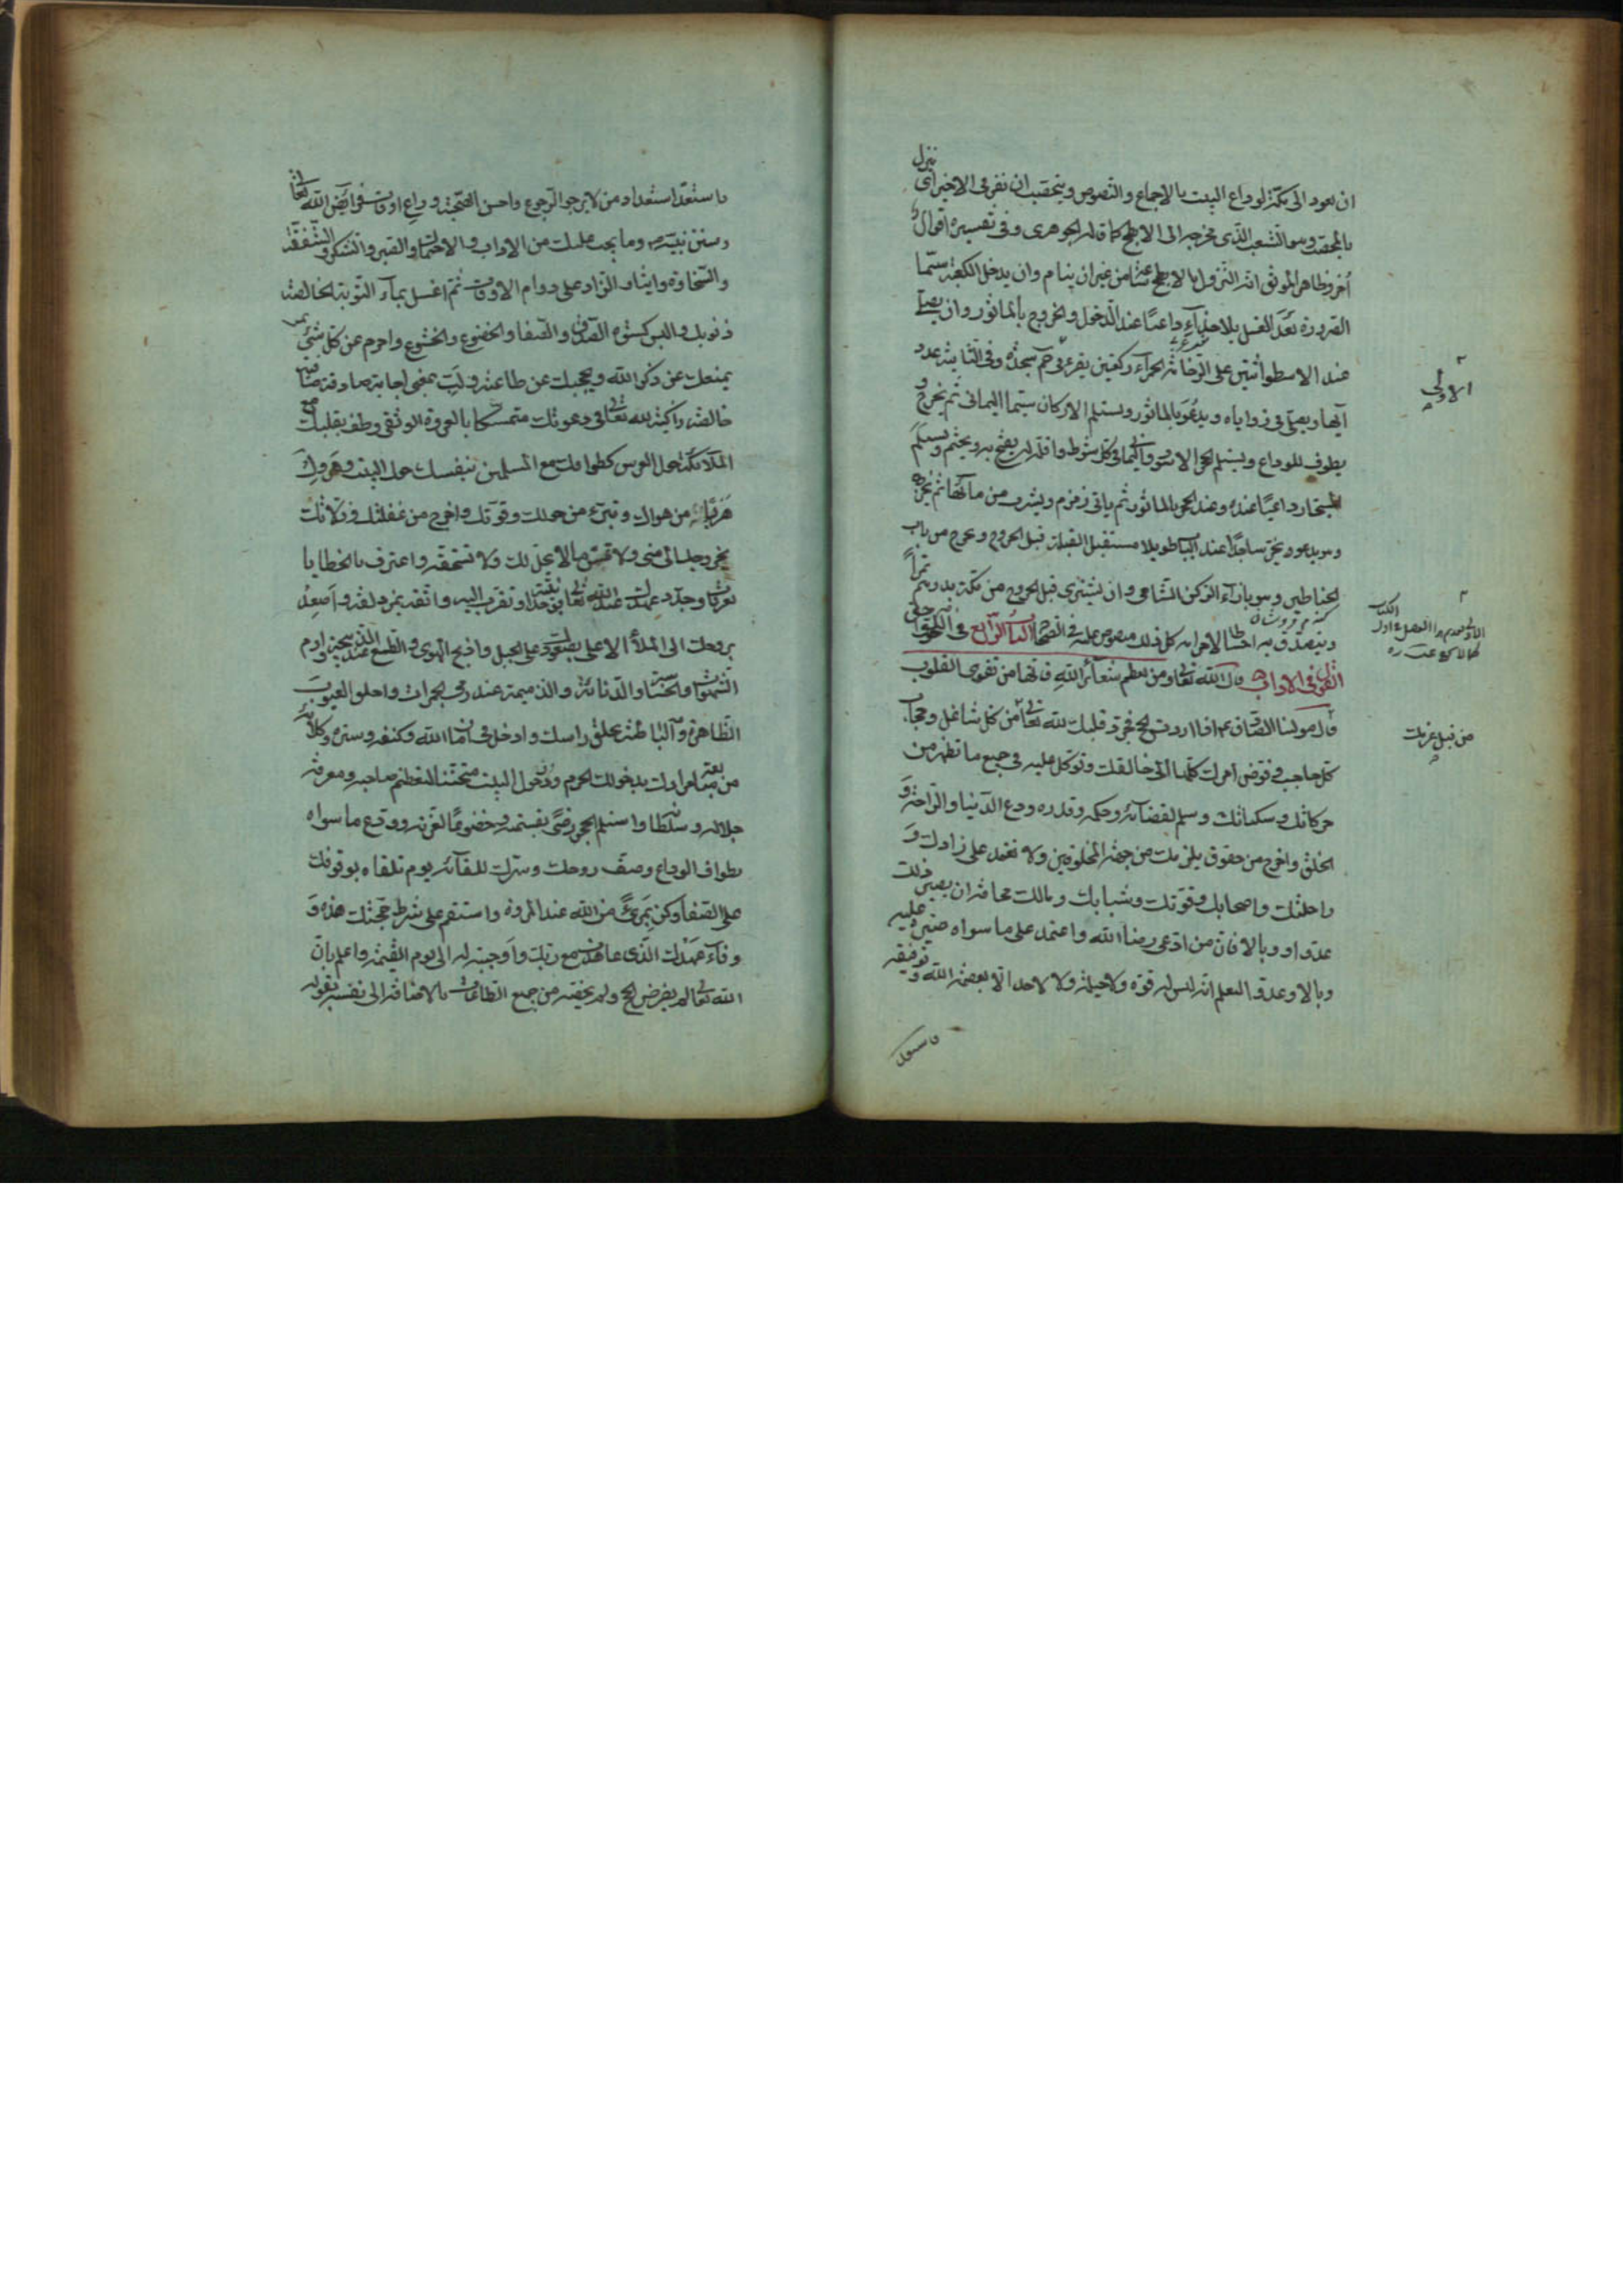 ان يعود الى مكة لوداع البيت بالاجماع والنصوص ويتحقب ان نفر فى الاخير اى ينزل
بالمحصّب وهو الشعب الذى مخرجه الى الابطح كما قاله الجوهرى وفى تفسيره اقوال
اُخر وظاهر الموثق انه النزول بالابطح من غير ان ينام وان يدخل الكعبة سيّما
الصرورة بعد الغسل بلا حذاء داعيًا عند الدخول والخروج بالماثور وان يصلّى
عند الاسطوانتين على الرخامة الحمراء ركعتين يقرء فى حم سجده وفى الثانية عدد
آيها ويصلّى فى زواياه ويدعو بالماثور ويستلم الاركان سيّما اليمانى ثم يخرج و
يطوف للوداع ويستلم الحجر الاسود واليمانى فى كل شوط واقله ان يفتح به ويختم ويستلم
المستجار داعيًا عنده وعند الحجر بالماثور ثم ياتى زمزم ويشرب من مائها ثم يخرج
وهو يدعو ويخرّ ساجدًا عند الباب طويلا مستقبل القبلة قبل الخروج ويخرج من باب
الحناطين وهو بازاء الركن الشامى وان يشترى قبل الخروج من مكة بدرهم تمراً
ويتصدق به احتياطا لاحرامه كل ذلك منصوص عليه فى الصحاح الباب الرابع فى اللواحق
القول فى الاداب قال الله تعالى ومن يعظم شعائر الله فانها من تقوى القلوب
قال مولينا الصادق ع اذا اردت الحج فجرّد قلبك لله تعالى من كل شاغل وحجاب
كل حاجب وفوّض امورك كلها الى خالقك وتوكل عليه فى جميع ما تظهر من
حركاتك وسكناتك وسلم لقضائه وحكمه وقدره ودع الدنيا والراحة و
الخلق واخرج من حقوق يلزمك من جهة المخلوقين ولا تعتمد على زادك و
راحلتك واصحابك وقوّتك وشبابك ومالك مخافة ان يصير ذلك
عدوا ووبالا فان من ادّعى رضا الله واعتمد على ما سواه صيّره عليه
وبالا وعدوّا ليعلم انه ليس له قوة ولا حيلة ولا لاحد الا بعصمة الله وتوفيقه
الاولى
من قبل عزمك
فاستعدّ استعداد من لا يرجو الرجوع واحسن الصحبة وراع اوقات فرائض الله تعالى
وسنن نبيّه ص وما يجب عليك من الاداب والاحتمال والصبر والشكر والشفقة
والسخاوة وايثار الزاد على دوام الاوقات ثم اغسل بماء التوبة الخالصة
ذنوبك والبس كسوة الصدق والصفا والخضوع والخشوع واحرم عن كل شىء
يمنعك عن ذكر الله ويحجبك عن طاعته ولبّ بمعنى اجابة صادقة صافية
خالصة زاكية لله تعالى فى دعوتك متمسكا بالعروة الوثقى وطف بقلبك مع
الملائكة حول العرش كطوافك مع المسلمين بنفسك حول البيت وهرول
هربًا من هواك وتبرّء من حولك وقوّتك واخرج من غفلتك وزلاتك
بخروجك الى منى ولا تتمن ما لا يحل لك ولا تستحقه واعترف بالخطايا
بعرفات وجدّد عهدك عند الله تعالى بوحدانيته وتقرب اليه واتقه بمزدلفة واَصعِد
بروحك الى الملأ الاعلى بصعودك على الجبل واذبح الهوى والطمع عند الذبيحة وارم
الشهوات والخساسة والدنائة والذميمة عند رمى الجمرات واحلق العيوب
الظاهرة والباطنة بحلق راسك وادخل فى امان الله وكنفه وستره وكلائه
من متابعة مرادك بدخولك الحرم ودخول البيت متحققا لتعظيم صاحبه ومعرفة
جلاله وسلطانه واستلم الحجر رضًى بقسمته وخضوعًا لعزته وودّع ما سواه
بطواف الوداع وصفّ روحك وسرّك للقائه يوم تلقاه بوقوفك
على الصفا وكن بمرئً من الله عند المروة واستقم على شرط حجتك هذه و
وفاء عهدك الذى عاهدت مع ربك واَوجبته له الى يوم القيمة واعلم بان
الله تعالى لم يفرض الحج ولم يخصه من جميع الطاعات بالاضافة الى نفسه بقوله